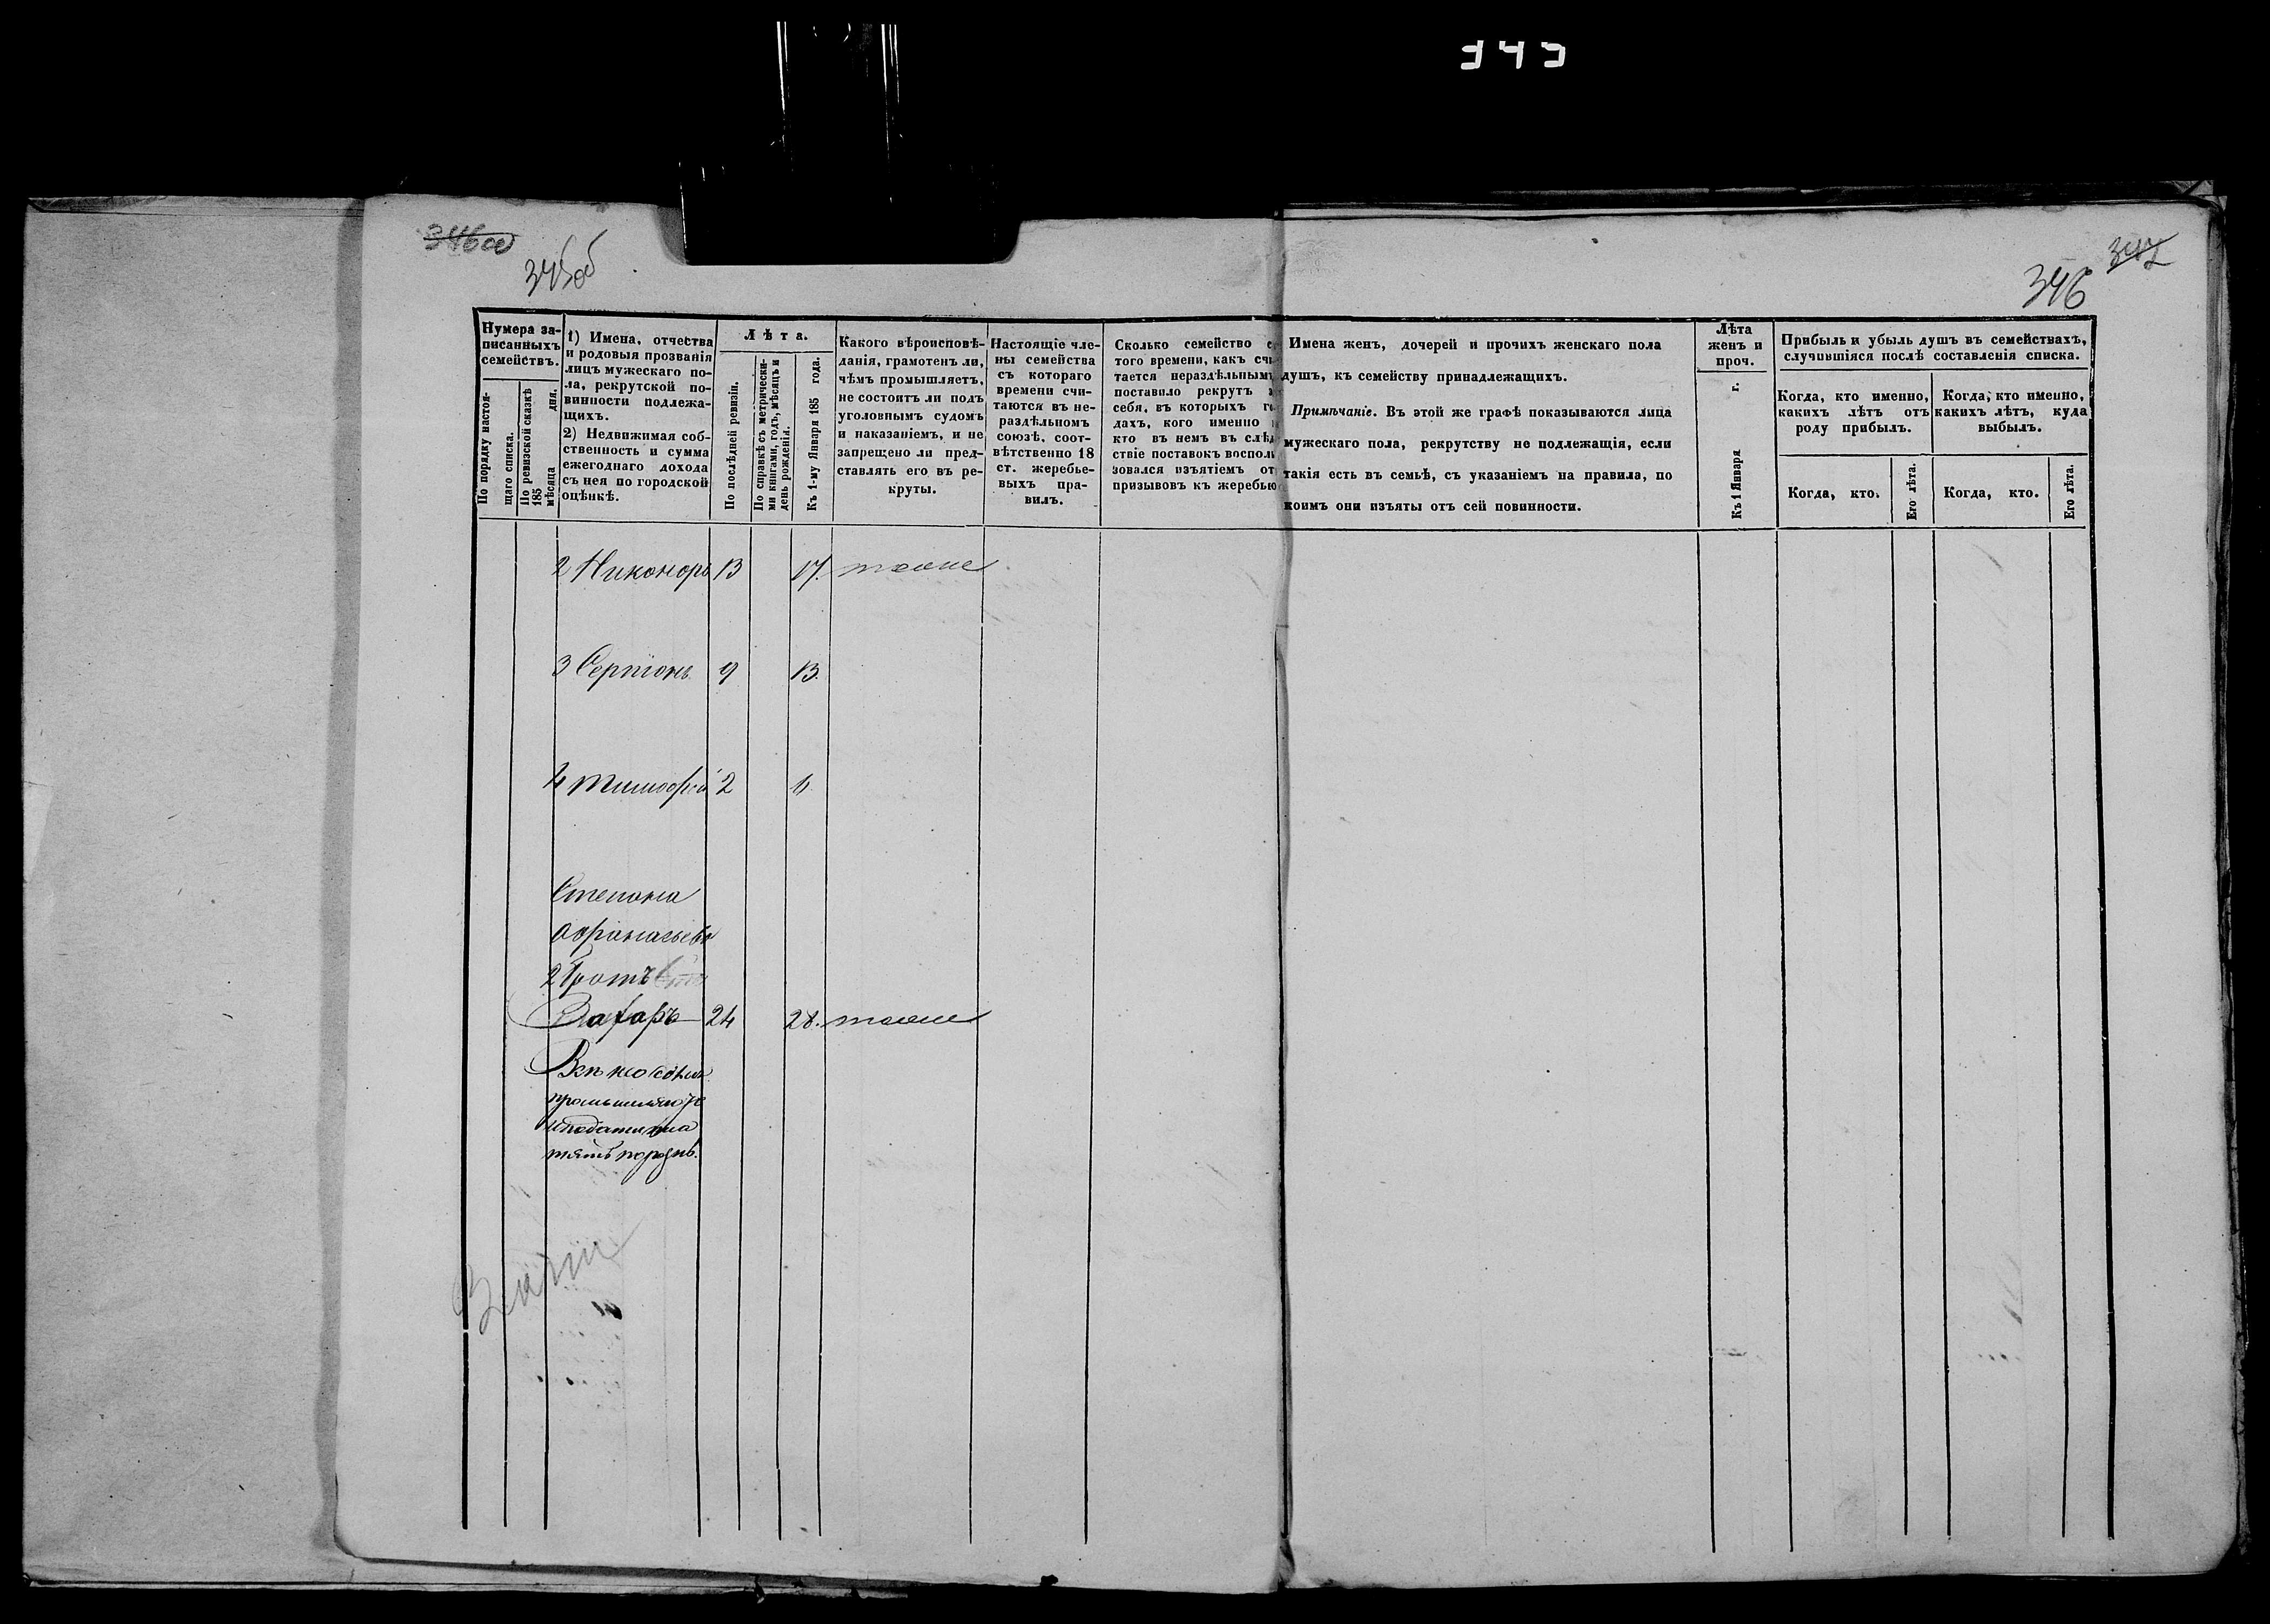 345
346об
345об
347
346
Нумера за-
писанныхъ
семействъ.
По порядку настоя-
щаго списка.
По ревизской сказкѣ
185 дня,
мѣсяца
1) Имена, отчества
и родовыя прозванія
лицъ мужескаго по-
ла, рекрутской по-
винности подлежа-
щихъ.
2) Недвижимая соб-
ственность и сумма
ежегоднаго дохода
съ нея по городской
оцѣнкѣ.
Лѣта.
По послѣдней ревизіи.
По справкѣ съ метрически-
ми книгами, годъ, мѣсяцъ и
день рожденія.
Къ 1-му Января 185 года.
Какого вѣроисповѣ-
данія, грамотенъ ли,
чѣмъ промышляетъ,
не состоитъ ли подъ
уголовнымъ судомъ
и наказаніемъ, и не
запрещено ли пред-
ставлять его въ ре-
круты.
Настоящіе чле-
ны семейства
съ котораго
времени счи-
таются въ не-
раздѣльномъ
союзѣ, соот-
вѣтственно 18
ст. жеребье-
выхъ пра-
вилъ.
Сколько семейство с
того времени, какъ счи
тается нераздѣльнымъ
поставило рекрутъ
себя, въ которыхъ го
дахъ, кого именно
кто въ немъ въ слѣд
ствіе поставокъ восполь
зовался изъятіемъ от
призывовъ къ жеребью
Имена женъ, дочерей и прочихъ женскаго пола
душъ, къ семейству принадлежащихъ.
Примѣчаніе. Въ этой же графѣ показываются лица
мужескаго пола, рекрутству не подлежащія, если
такія есть въ семьѣ, съ указаніемъ на правила, по
коимъ они изъяты отъ сей повинности.
Лѣта
женъ и
проч.
Къ 1 Января г.
Прибыль и убыль душъ въ семействахъ,
случившіяся послѣ составленія списка.
Когда, кто именно,
какихъ лѣтъ отъ
роду прибылъ.
Когда, кто именно,
какихъ лѣтъ, куда
выбылъ.
Когда, кто.
Его лѣта.
Когда, кто.
Его лѣта.
2 Никоноръ 13 17. тоже
3 Серпіонъ 9 13.
4 Тимофей 2 6
Степана
Афонасьева
2 братъ
Захаръ 24 28. тоже